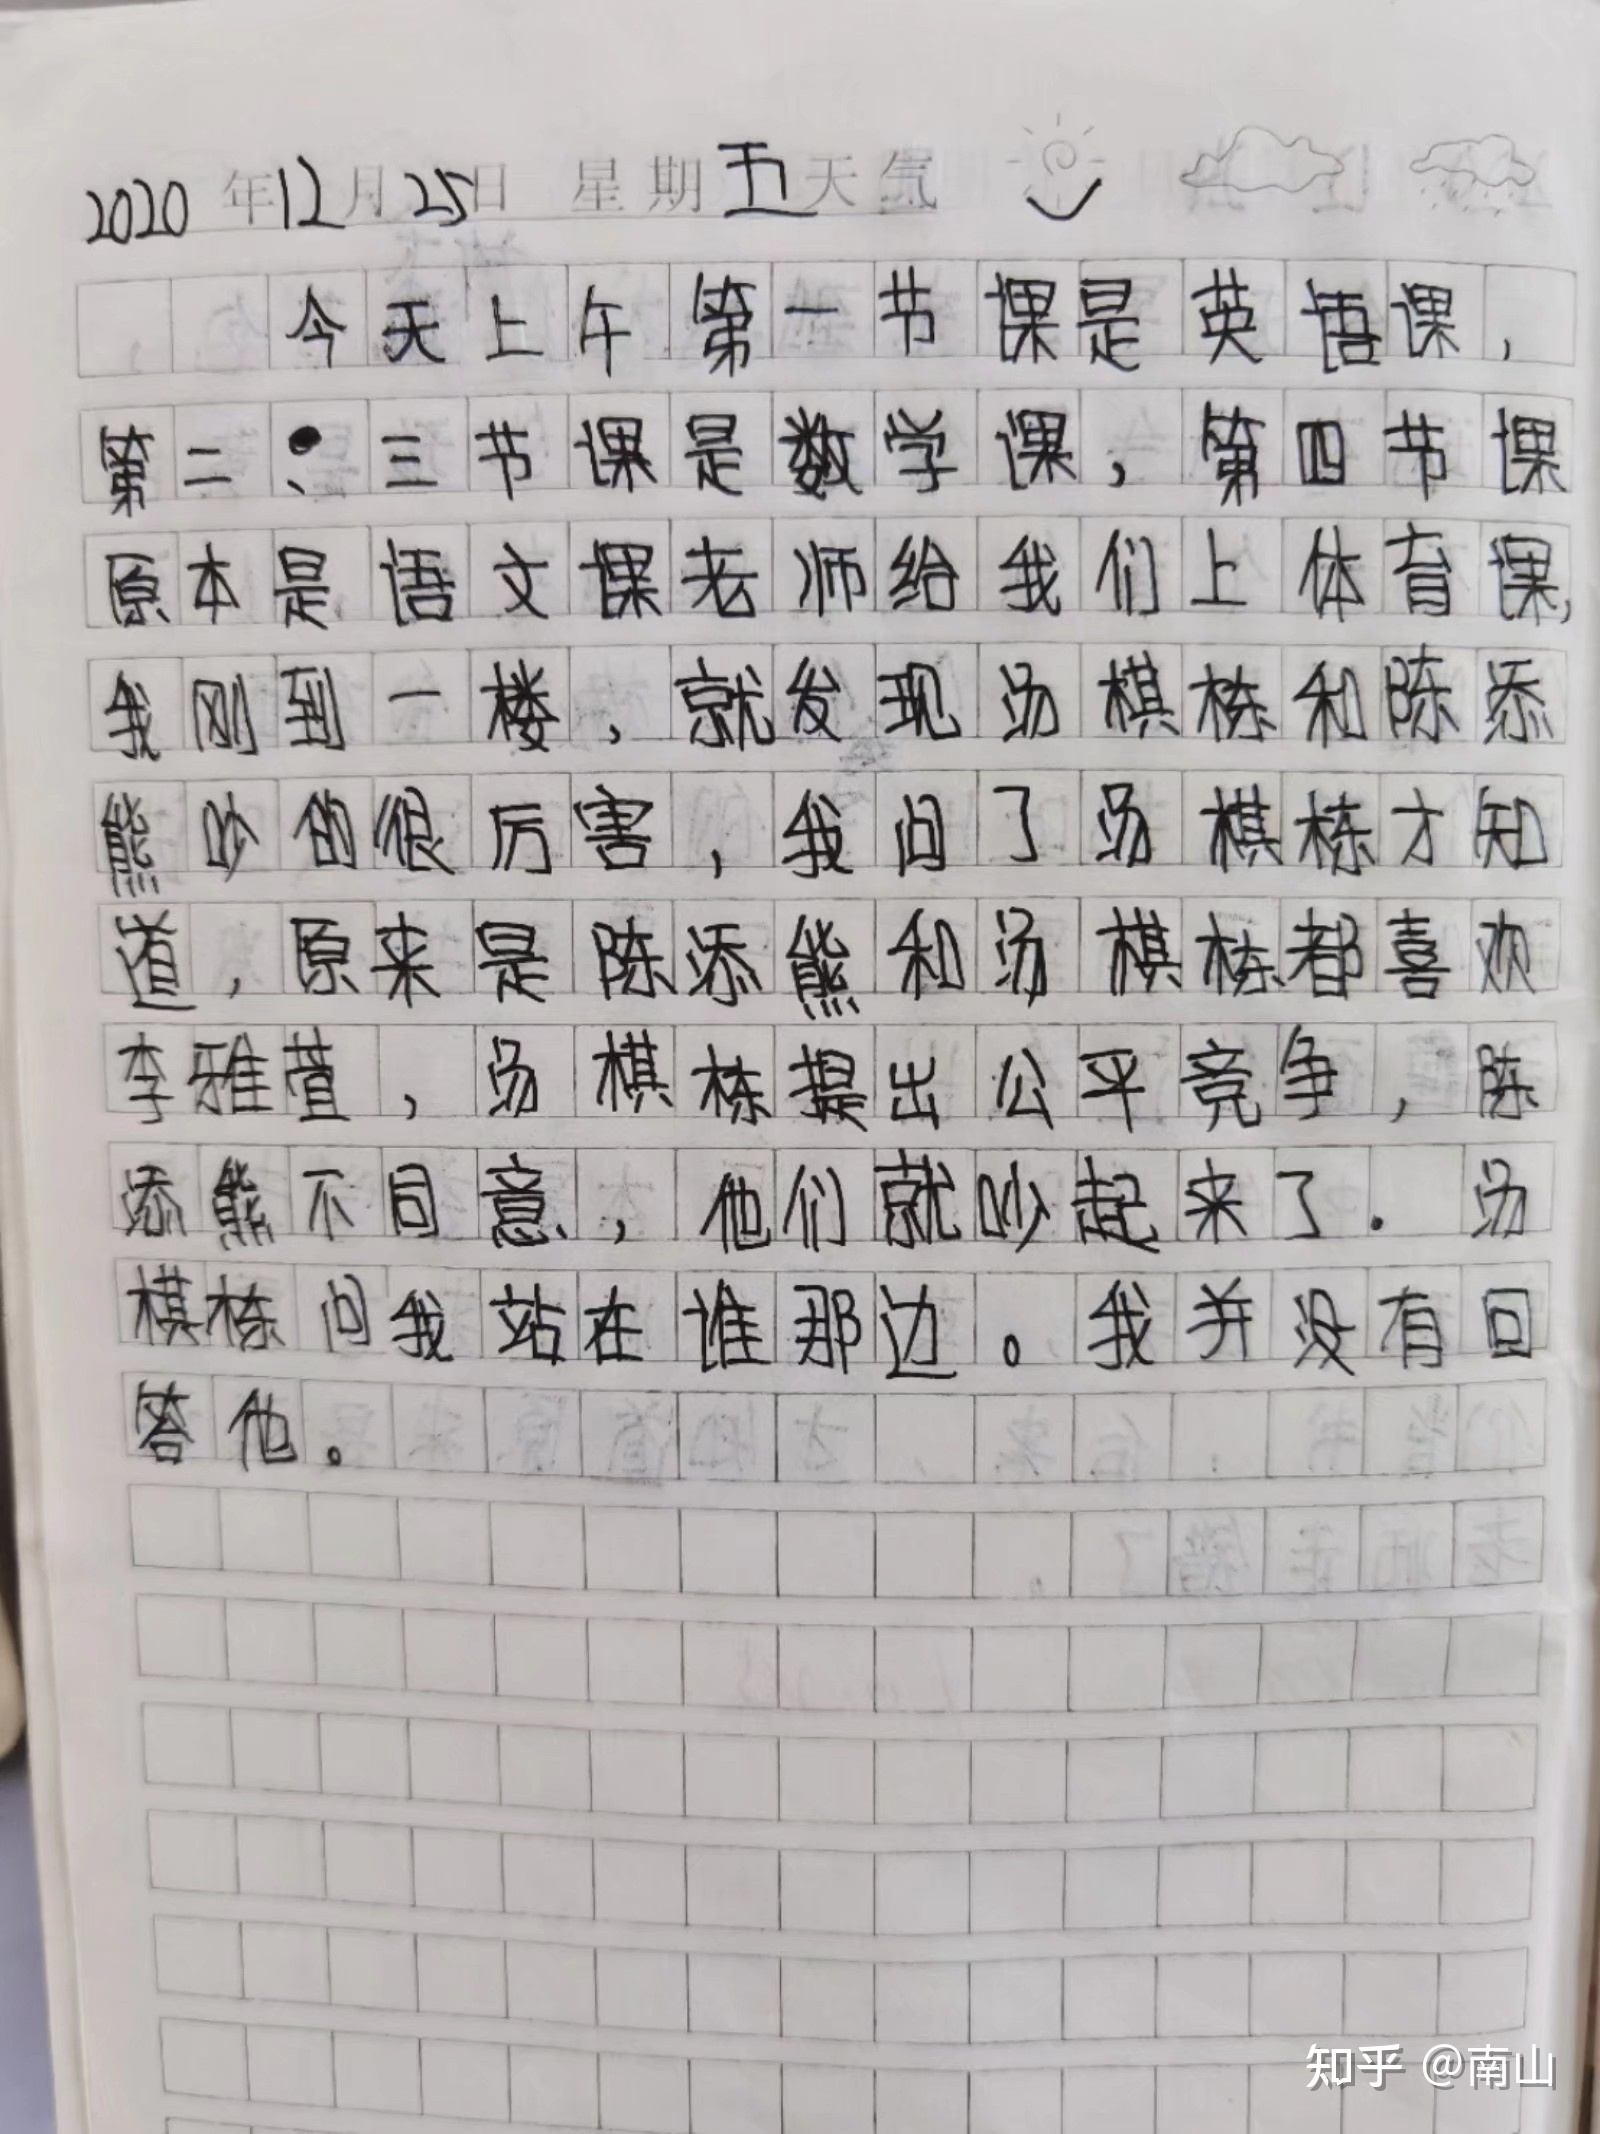 2020年12月25日 星期五天气
今天上午第一节课是英语课，
第二、三节课是数学课，第四节课
原本是语文课老师给我们上体育课，
我刚到一楼，就发现汤棋栋和陈添
熊吵的很厉害，我问了汤棋栋才知
道，原来是陈添熊和汤棋栋都喜欢
李雅萱，汤棋栋提出公平竞争，陈
添熊不同意，他们就吵起来了.汤
棋栋问我站在谁那边。我并没有回
答他。
知乎 @南山